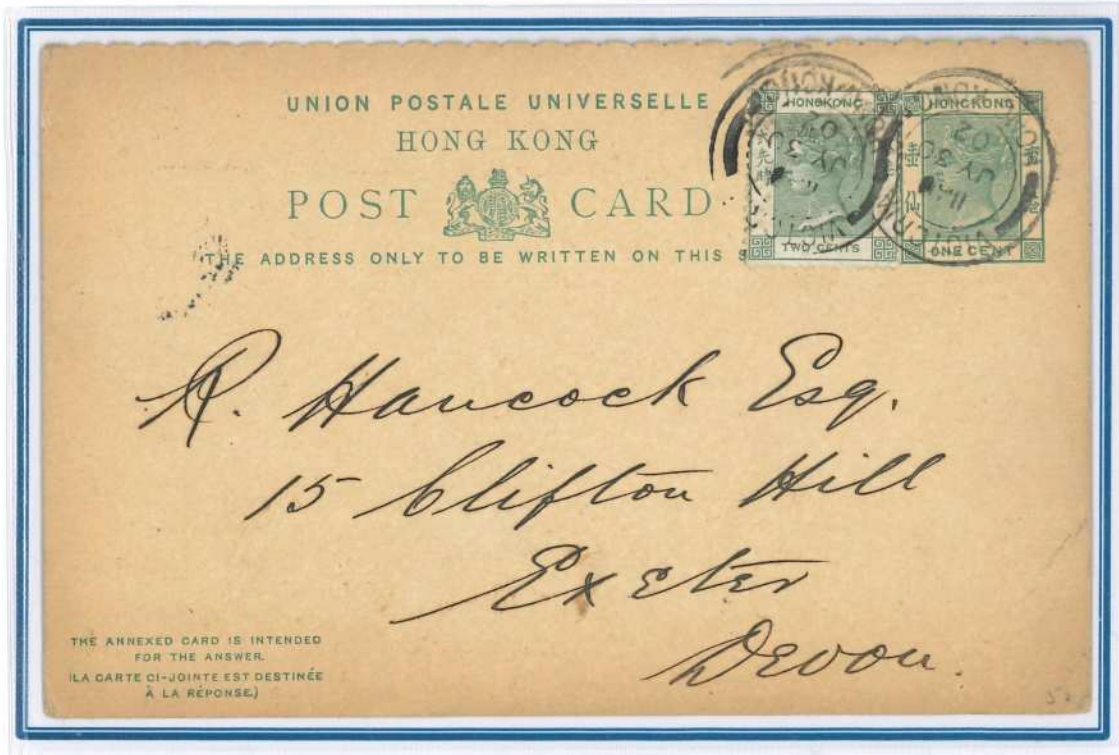 UNION POSTALE UNIVERSELLE
HONG KONG
POST CARD
THE ADDRESS ONLY TO BE WRITTEN ON THIS S
HONGKONG
TWO CENTS
HONGKONG
壹
仙
ONE CENT
VICTORIA
HONG KONG
11
JY 30
02
R. Hancock Esq.
15 Clifton Hill
Exeter
Devon.
THE ANNEXED CARD IS INTENDED
FOR THE ANSWER.
(LA CARTE CI-JOINTE EST DESTINÉE
À LA RÉPONSE.)